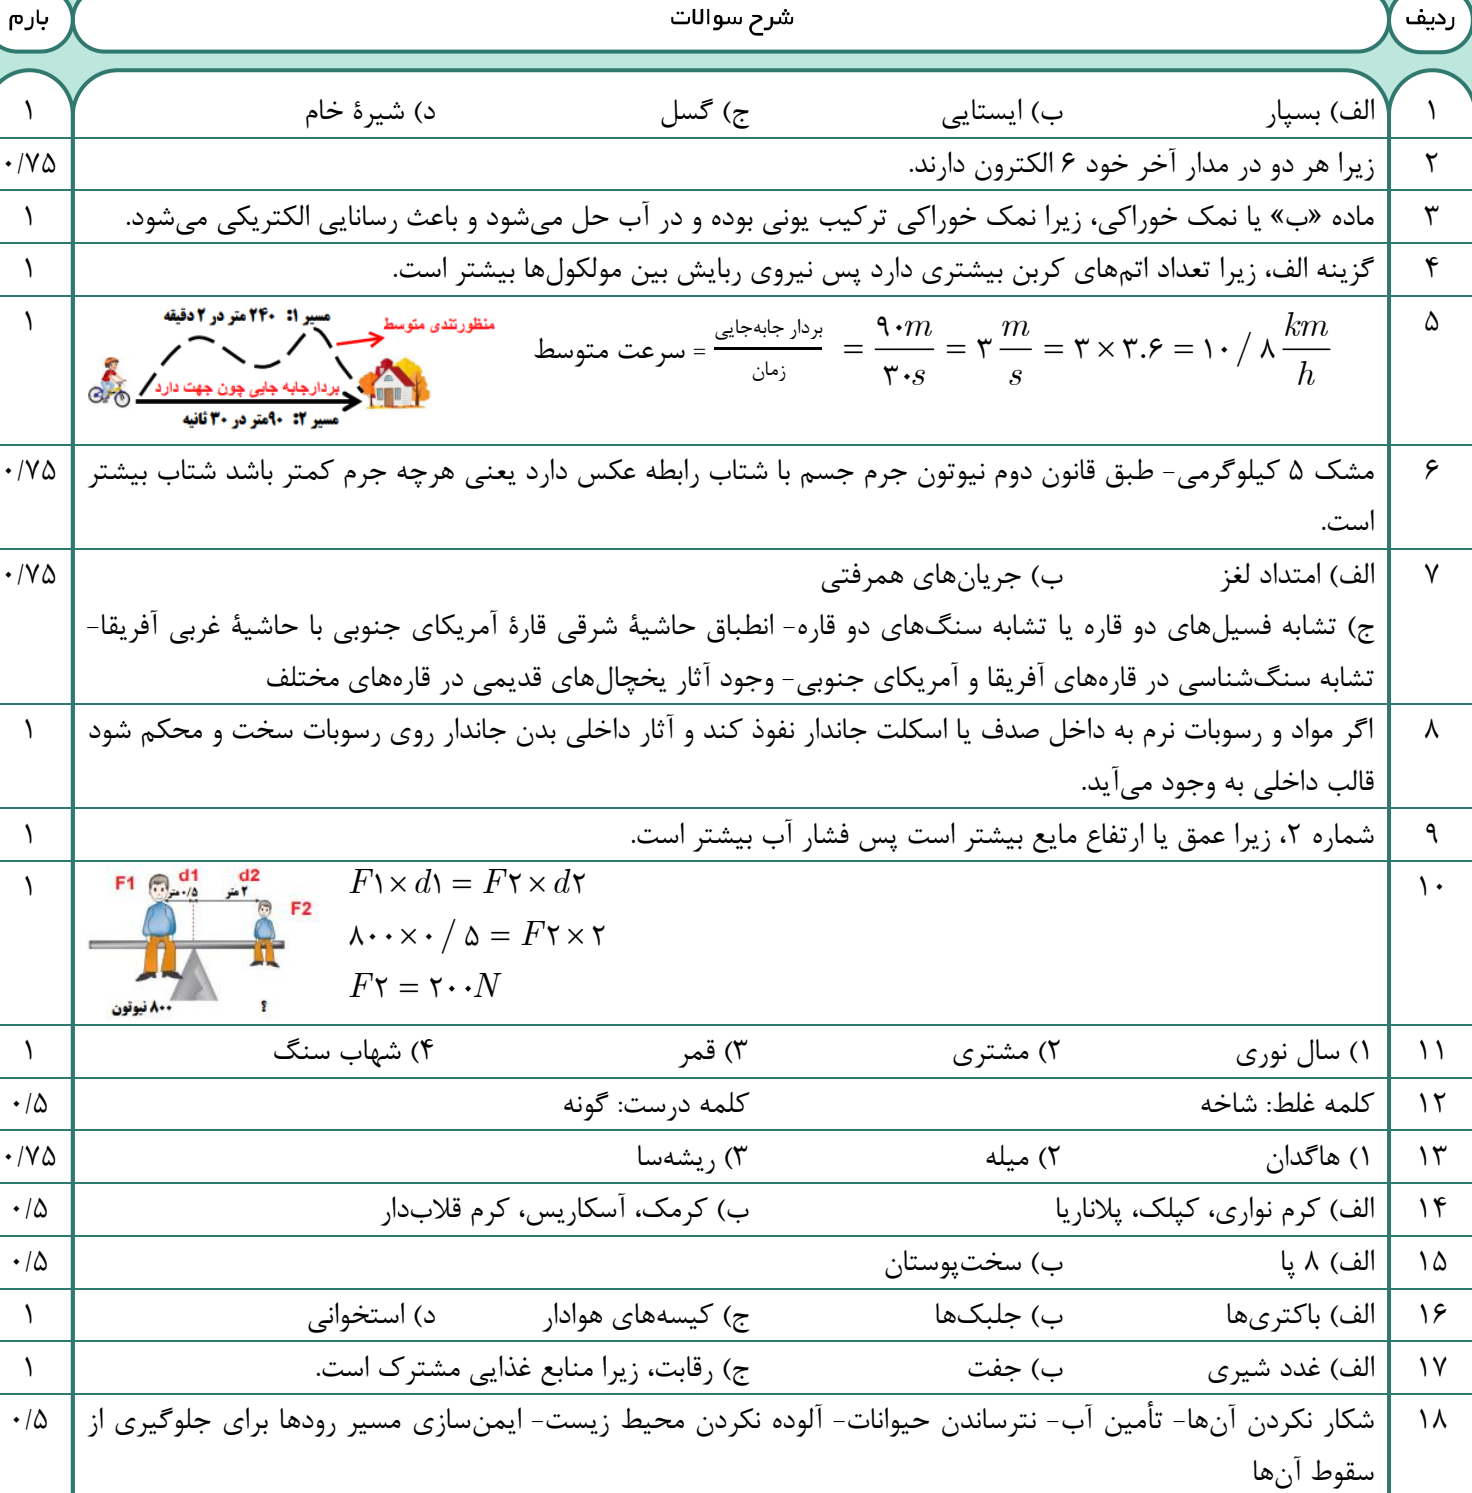 ردیف شرح سوالات بارم
۱ الف) بسپار ب) ایستایی ج) گسل د) شیرهٔ خام ۱
۲ زیرا هر دو در مدار آخر خود ۶ الکترون دارند. ۰/۷۵
۳ ماده «ب» یا نمک خوراکی، زیرا نمک خوراکی ترکیب یونی بوده و در آب حل می‌شود و باعث رسانایی الکتریکی می‌شود. ۱
۴ گزینه الف، زیرا تعداد اتم‌های کربن بیشتری دارد پس نیروی ربایش بین مولکول‌ها بیشتر است. ۱
۵ سرعت متوسط = بردار جابه‌جایی / زمان = ۹۰m / ۳۰s = ۳ m/s = ۳ × ۳.۶ = ۱۰/۸ km/h ۱
مسیر ۱: ۲۴۰ متر در ۲ دقیقه
منظورتندی متوسط
بردارجابه جایی چون جهت دارد
مسیر ۲: ۹۰متر در ۳۰ ثانیه
۶ مشک ۵ کیلوگرمی- طبق قانون دوم نیوتون جرم جسم با شتاب رابطه عکس دارد یعنی هرچه جرم کمتر باشد شتاب بیشتر ۰/۷۵
است.
۷ الف) امتداد لغز ب) جریان‌های همرفتی ۰/۷۵
ج) تشابه فسیل‌های دو قاره یا تشابه سنگ‌های دو قاره- انطباق حاشیهٔ شرقی قارهٔ آمریکای جنوبی با حاشیهٔ غربی آفریقا-
تشابه سنگ‌شناسی در قاره‌های آفریقا و آمریکای جنوبی- وجود آثار یخچال‌های قدیمی در قاره‌های مختلف
۸ اگر مواد و رسوبات نرم به داخل صدف یا اسکلت جاندار نفوذ کند و آثار داخلی بدن جاندار روی رسوبات سخت و محکم شود ۱
قالب داخلی به وجود می‌آید.
۹ شماره ۲، زیرا عمق یا ارتفاع مایع بیشتر است پس فشار آب بیشتر است. ۱
۱۰ F۱ × d۱ = F۲ × d۲ ۱
۸۰۰ × ۰/۵ = F۲ × ۲
F۲ = ۲۰۰N
F1 d1 d2 F2
۰/۵ متر ۲ متر
۸۰۰ نیوتون ؟
۱۱ ۱) سال نوری ۲) مشتری ۳) قمر ۴) شهاب سنگ ۱
۱۲ کلمه غلط: شاخه کلمه درست: گونه ۰/۵
۱۳ ۱) هاگدان ۲) میله ۳) ریشه‌سا ۰/۷۵
۱۴ الف) کرم نواری، کپلک، پلاناریا ب) کرمک، آسکاریس، کرم قلاب‌دار ۰/۵
۱۵ الف) ۸ پا ب) سخت‌پوستان ۰/۵
۱۶ الف) باکتری‌ها ب) جلبک‌ها ج) کیسه‌های هوادار د) استخوانی ۱
۱۷ الف) غدد شیری ب) جفت ج) رقابت، زیرا منابع غذایی مشترک است. ۱
۱۸ شکار نکردن آن‌ها- تأمین آب- نترساندن حیوانات- آلوده نکردن محیط زیست- ایمن‌سازی مسیر رودها برای جلوگیری از ۰/۵
سقوط آن‌ها